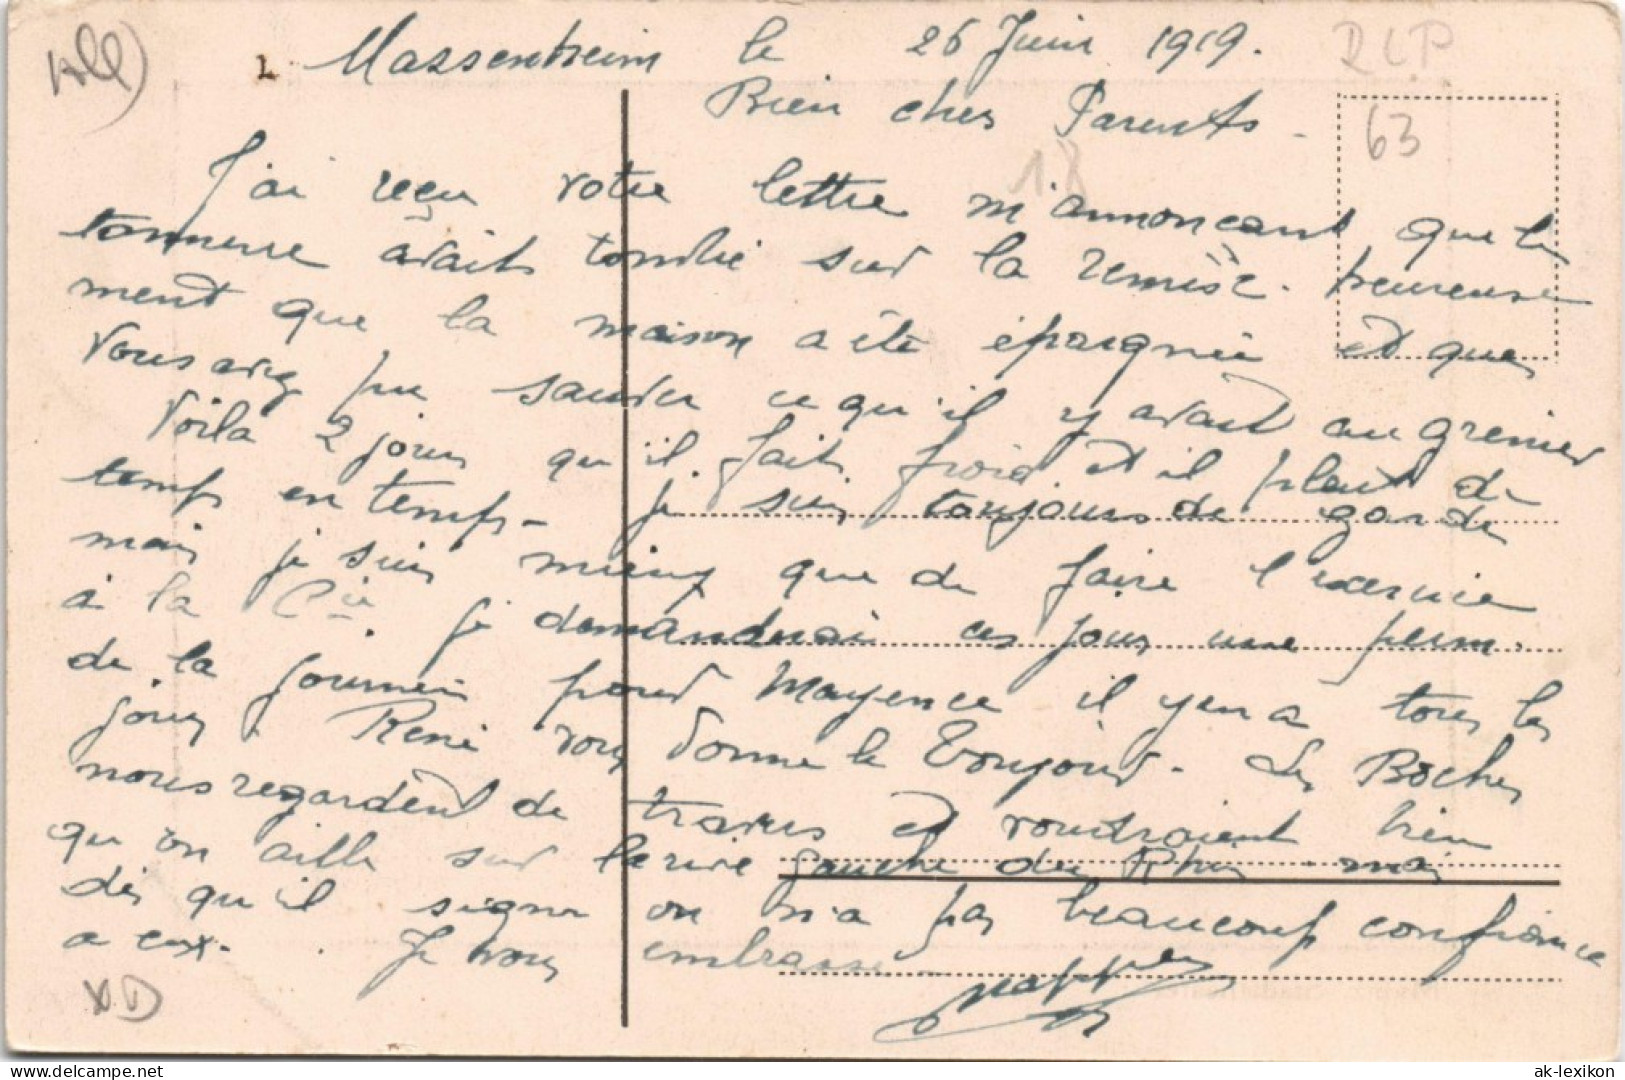 All)
1 Massenheim le 26 Juin 1919.
RLP
63
18
Bien chers Parents -
J'ai reçu votre lettre m'annoncant que le
tonnerre avait tombé sur la remise. heureuse
ment que la maison a été épargnée et que
vous avez pu sauver ce qu'il y avait au grenier
Voila 2 jours qu'il fait froid et il pleut de
temps en temps - je suis toujours de garde
mais je suis mieux que de faire l'exercice
à la Cie. je demanderai ces jours une perm.
de la journée pour Mayence il y en a tous les
jours. René vous donne le bonjour. Les Boches
nous regardent de travers et voudraient bien
qu'on aille sur la rive gauche du Rhin mais
dès qu'il signe on n'a pas beaucoup confiance
a eux. Je vous embrasse
XD
ak-lexikon